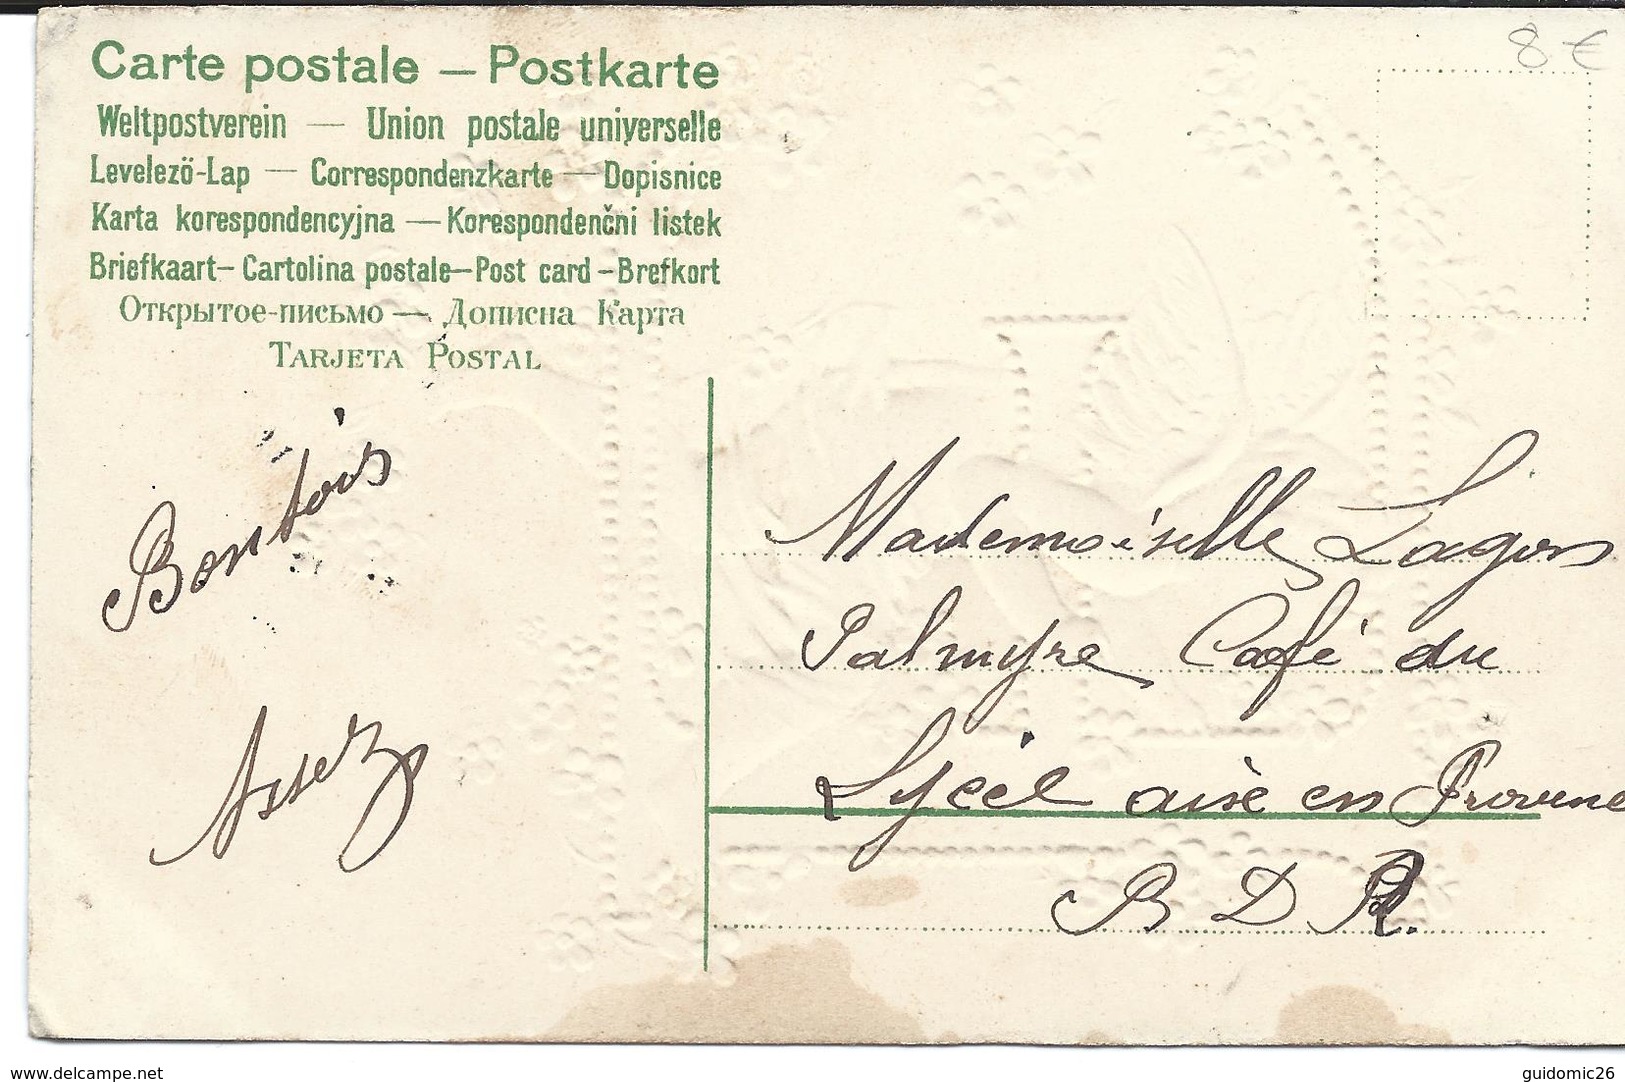 8 €
Carte postale — Postkarte
Weltpostverein — Union postale universelle
Levelező-Lap — Correspondenzkarte — Dopisnice
Karta korespondencyjna — Korespondenčni listek
Briefkaart — Cartolina postale — Post card — Brefkort
Открытое-письмо — Дописна Карта
TARJETA POSTAL
Mademoiselle Lagon
Palmyre Café du
Lycéé aisè en Provence
B D R.
delcampe.net
guidomic26